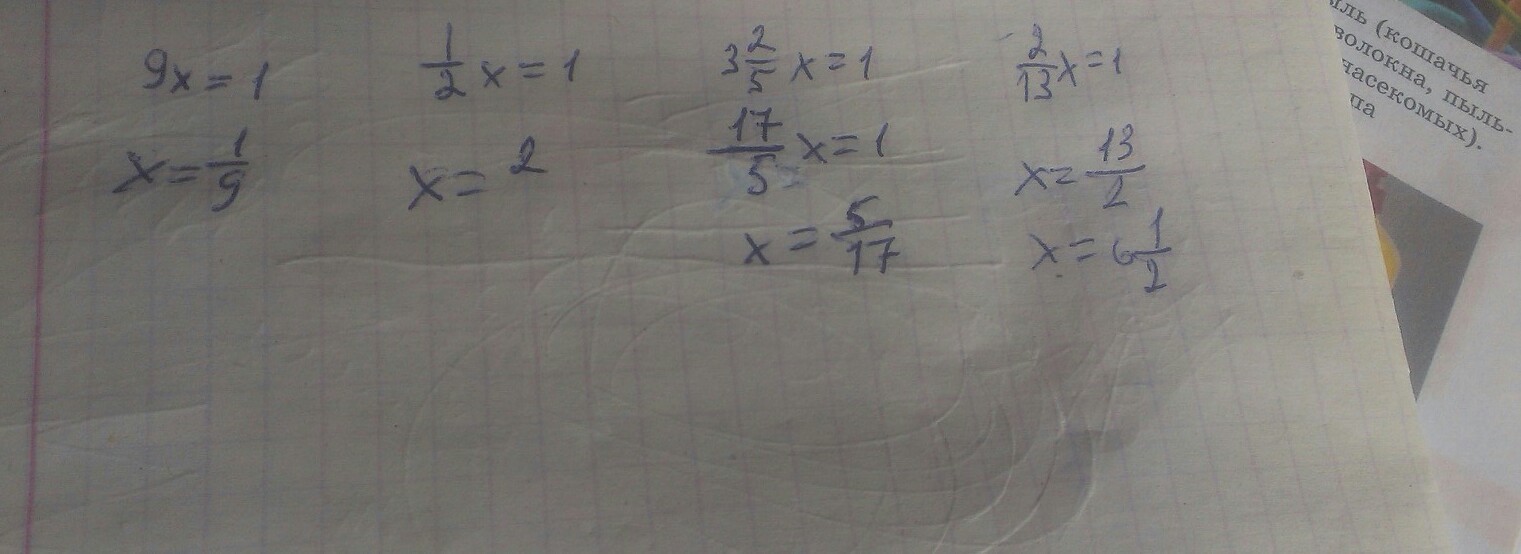 9x = 1
x = 1/9
1/2 x = 1
x = 2
3 2/5 x = 1
17/5 x = 1
x = 5/17
2/13 x = 1
x = 13/2
x = 6 1/2
(кошачья
волокна, пыль-
насекомых).